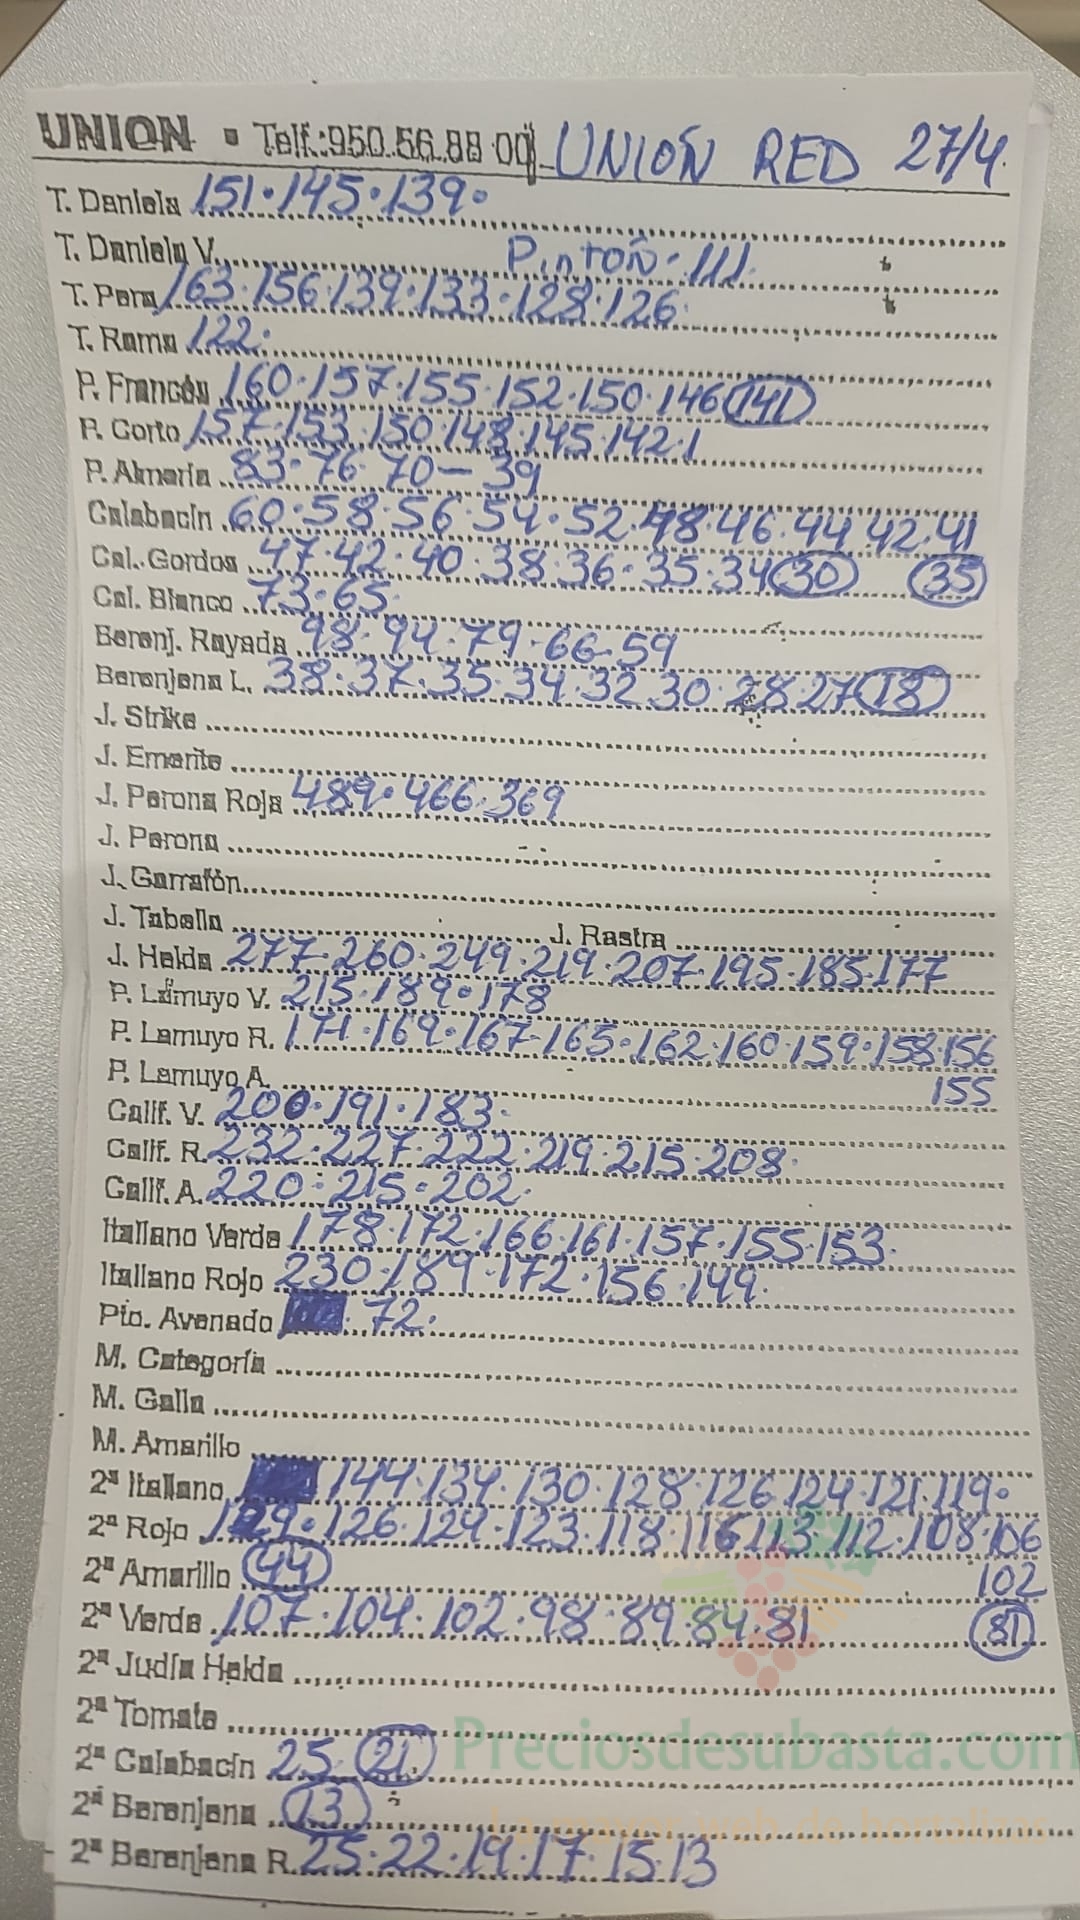 UNION • Telf.:950.56.88 00 UNIÓN RED 27/4.
T. Daniela 151·145·139·
T. Daniela V. Pintón·111.
T. Pera 163·156·139·133·128·126·
T. Rama 122·
P. Francés 160·157·155·152·150·146 141
P. Corto 157·153·150·148·145·142·1
P. Almería 83·76·70-39
Calabacín 60·58·56·54·52·48·46·44·42·41
Cal. Gordos 47·42·40·38·36·35·34 30 35
Cal. Blanco 73·65·
Berenj. Rayada 98·94·79·66·59
Berenjena L. 38·37·35·34·32·30·28·27 18
J. Strike
J. Emerite
J. Perona Roja 489·466·369
J. Perona
J. Garrafón
J. Tabella J. Rastra
J. Helda 277·260·249·219·207·195·185·177
P. Lamuyo V. 215·189·178
P. Lamuyo R. 171·169·167·165·162·160·159·158·156
155
P. Lamuyo A.
Calif. V. 200·191·183·
Calif. R. 232·227·222·219·215·208·
Calif. A. 220·215·202·
Italiano Verde 178·172·166·161·157·155·153·
Italiano Rojo 230·189·172·156·149·
Pto. Avenado 72·
M. Categoría
M. Galia
M. Amarillo
2ª Italiano 144·134·130·128·126·124·121·119·
2ª Rojo 129·126·124·123·118·116·113·112·108·106
102
2ª Amarillo 44
2ª Verde 107·104·102·98·89·84·81 81
2ª Judía Helda
2ª Tomate
2ª Calabacín 25 21
2ª Berenjena 13
2ª Berenjena R. 25·22·19·17·15·13
Preciosdesubasta.com